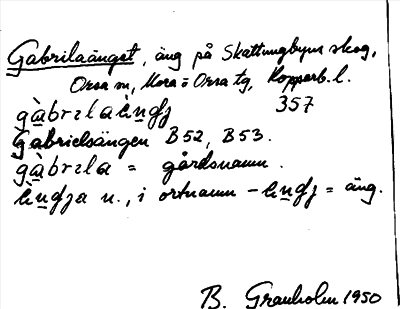 Gabrilaänget, äng på Skattungbyns skog,
Orsa sn, Mora o Orsa tg, Kopparb. l.
357
Gabrielsängen B52, B53.
= gårdsnamn.
n., i ortnamn = äng.
B. Granholm 1950